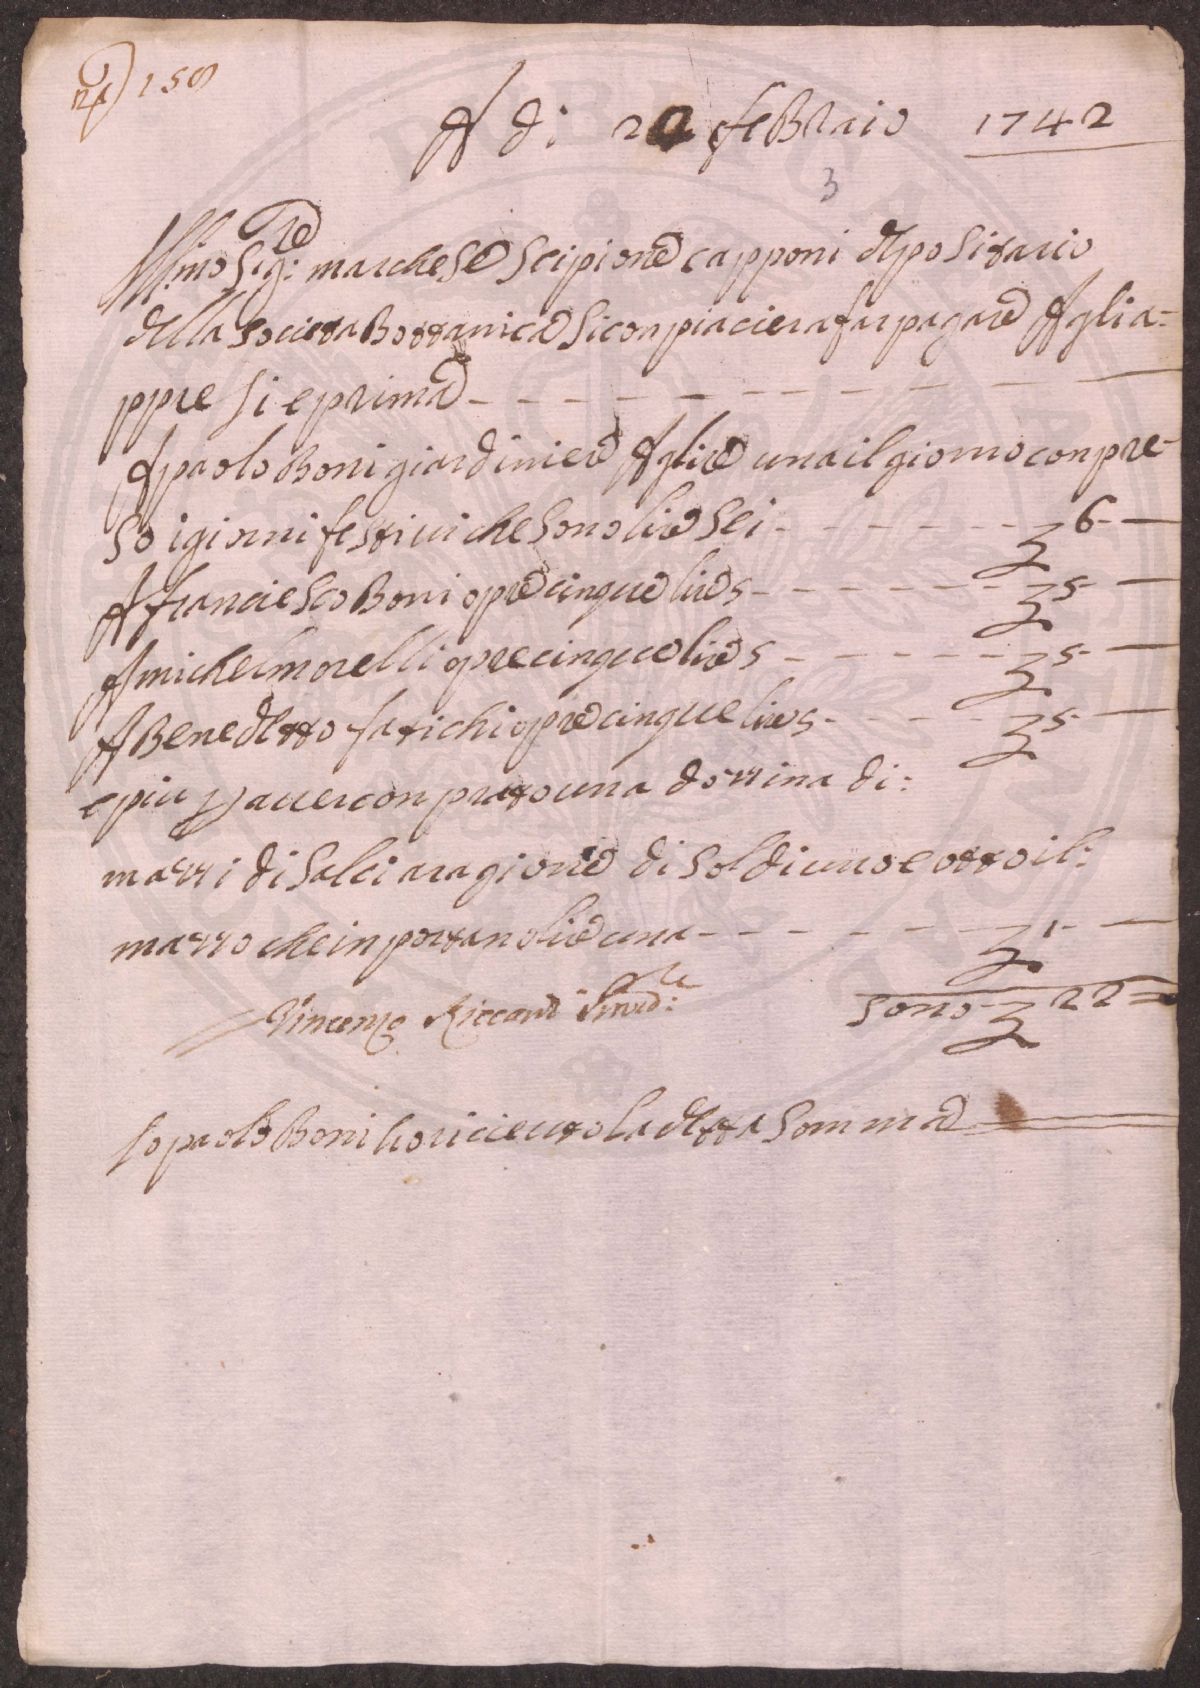 158
A di 22 feBraio 1742
3
Ill.mo Sig.re marchese Scipione capponi depositario
della Societa Bottanica Si conpiaciera far pagare Aglia=
ppre si e prima
A paolo Boni giardiniere A lire una il giorno conpre=
so i giorni festiui che sono lire sei 6
A franciesco Boni opre cinque lire 5 5
A michel morelli opre cinque lire 5 5
A Benedetto fatichi opre cinque lire 5 5
e piu p auer conprato una dozzina di:
mazzi di salci a ragione di soldi uno e otto il:
mazzo che inportano lire una 1
Vincenzo Riccardi Sind:co sono 22
Io paolo Boni ho riceuto la detta somma